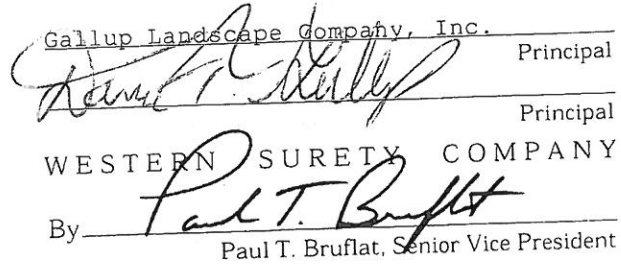 Gallup Landscape Company, Inc.
Principal
Principal
WESTERN SURETY COMPANY
By Paul T. Bruflat
Paul T. Bruflat, Senior Vice President